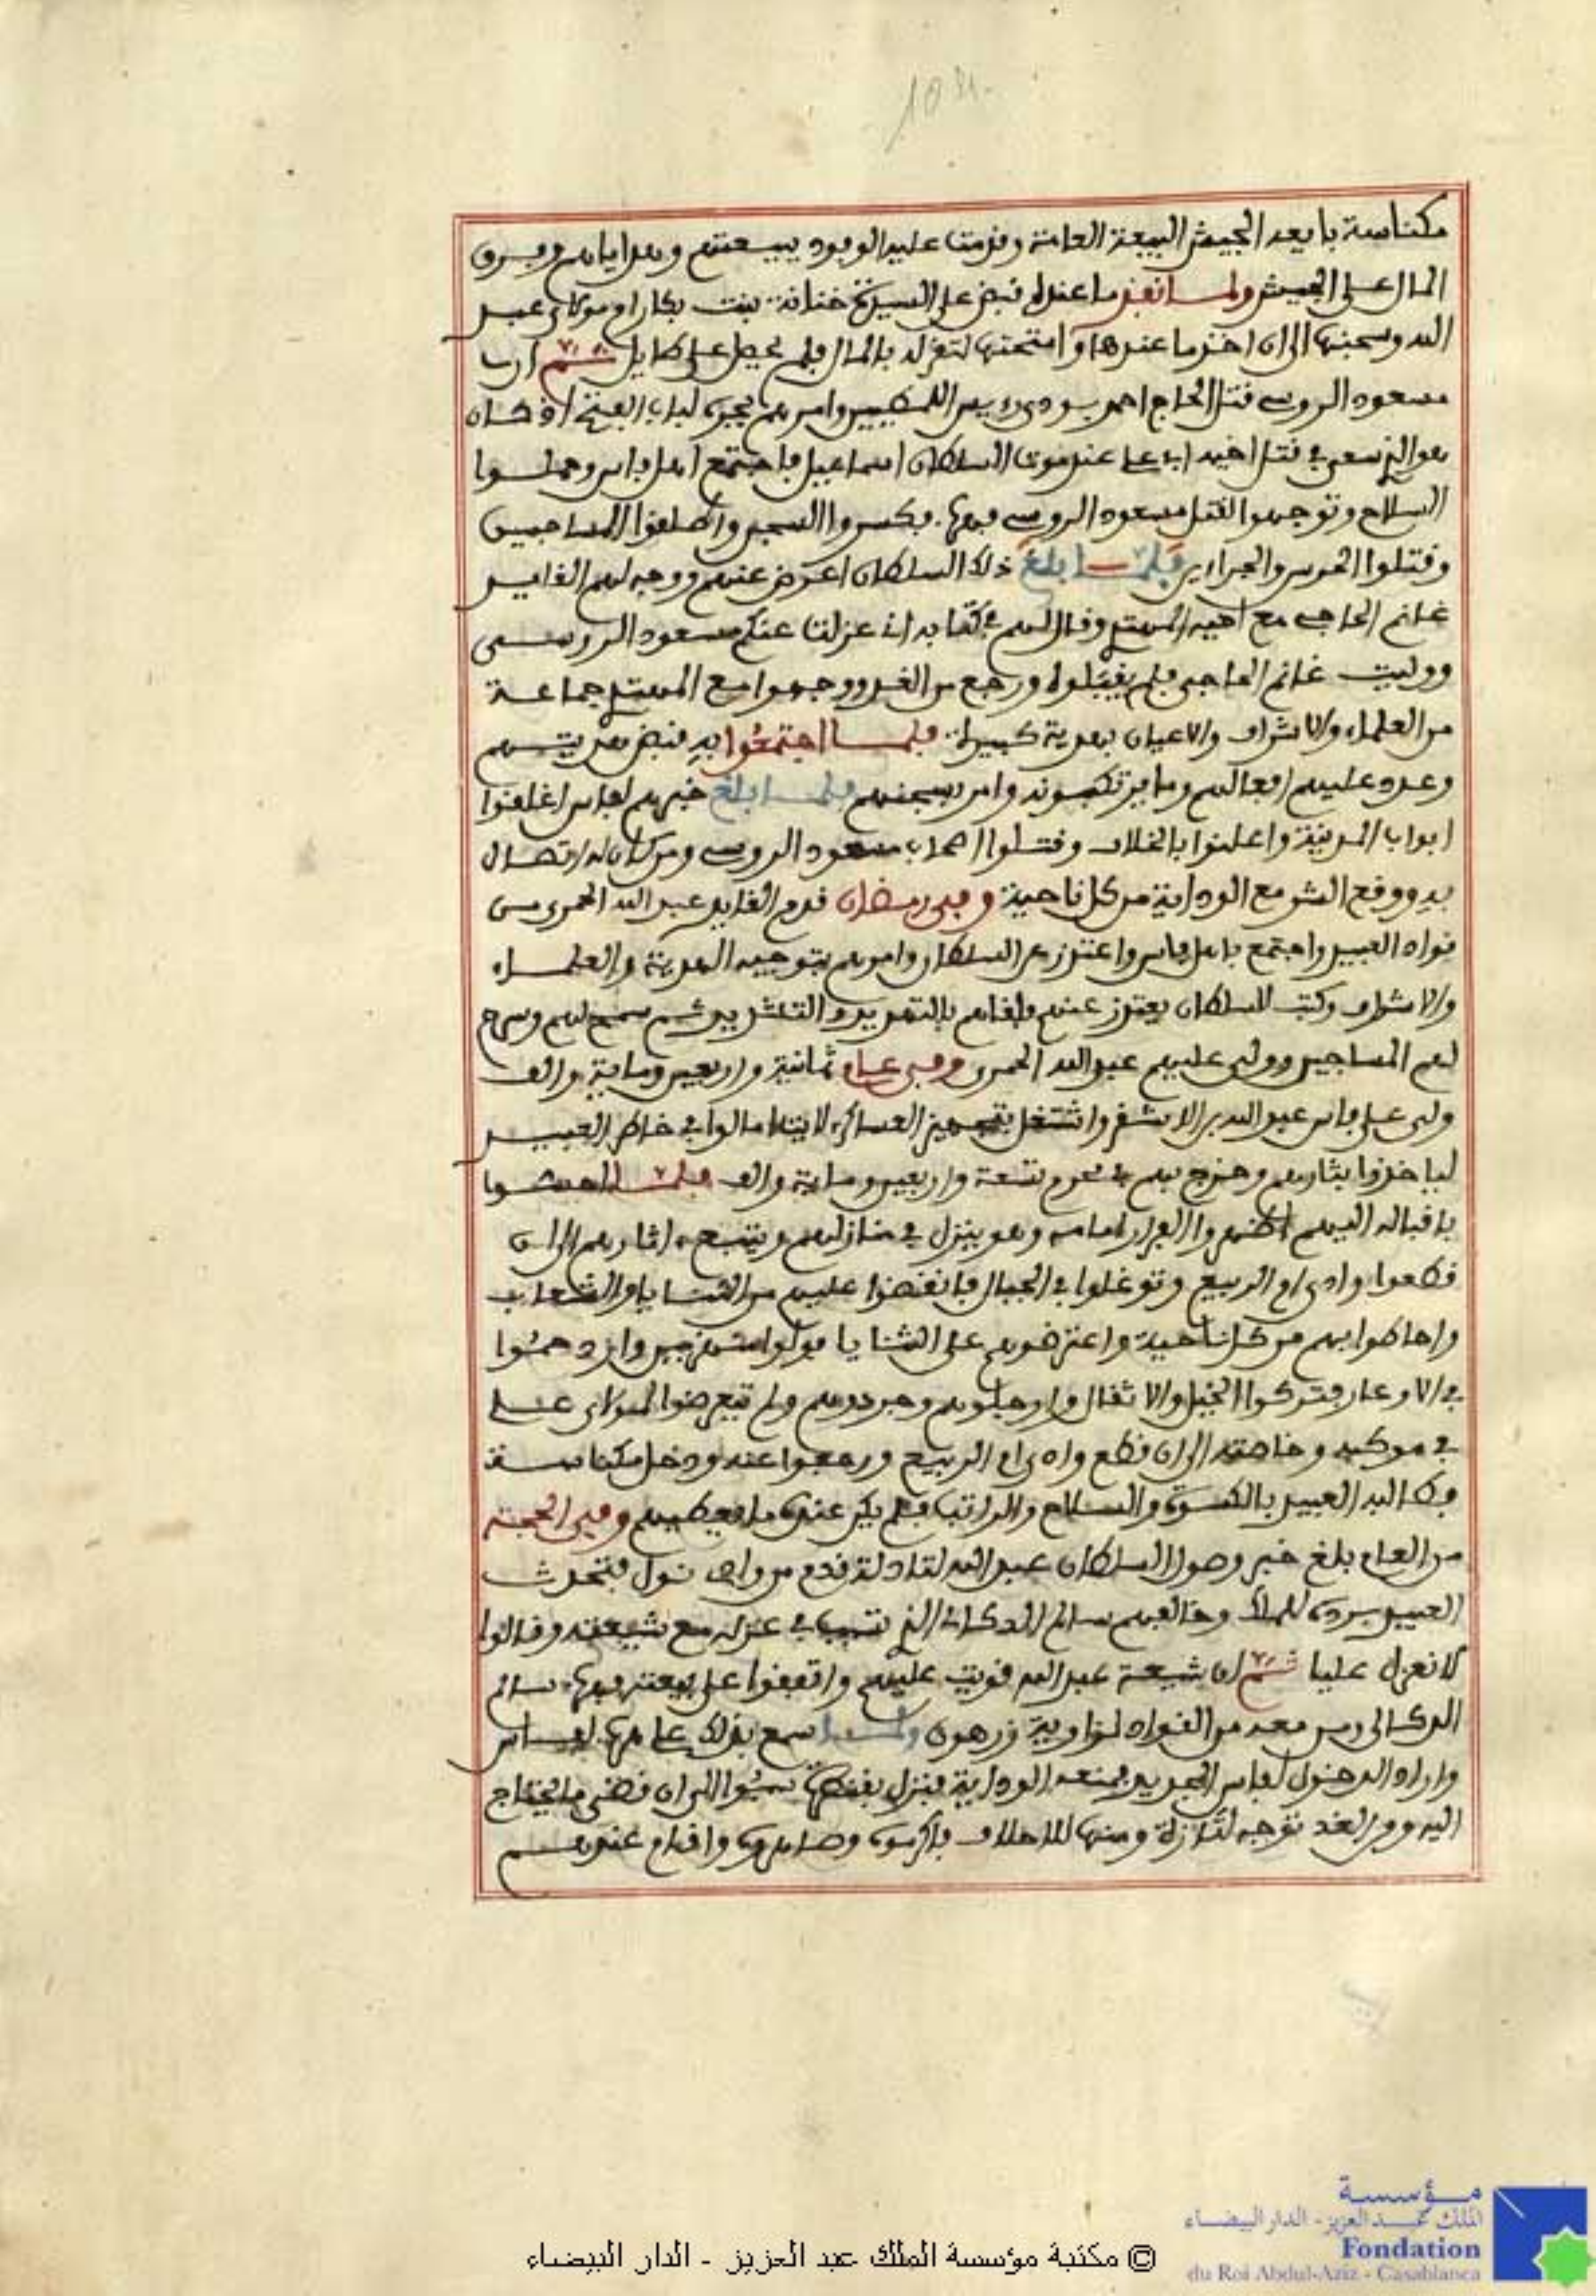 مكناسة بايعه الجيش البيعة العامة وقدمت عليه الوفود ببيعتهم وهداياهم وفرق
المال على الجيش ولما نفذ ما عنده قبض على السيدة خناثة بنت بكار ام مولاي عبد
الله وسجنها الى ان اخذ ما عندها وامتحنها لتقر له بالمال فلم يحصل على طايل ثم ان
مسعود الروسي قتل الحاج احمد بودي رييس اللمطيين وامر بهم يجره لباب الفتح اذ كان
هو الذي سعى في قتل اخيه ابي علي عند موت السلطان اسماعيل فاجتمع اهل فاس وحملوا
السلاح وتوجهوا لقتل مسعود الروسي ففر فكسروا السجن واطلقوا المساجين
وقتلوا الحرس والجزارين فلما بلغ ذلك السلطان اعرض عنهم ووجه لهم القايد
غانم الحاجي مع اخيه المهتدي وقال لهم في كتابه انا عزلنا عنكم مسعود الروسي
ووليت غانم الحاجي فلم يقبلوه ورجع من الغد ووجهوا مع المهتدي جماعة
من العلماء والاشراف والاعيان بهدية كبيرة فلما اجتمعوا به قبض هديتهم
وعدد عليهم افعالهم وما يرتكبونه وامر بسجنهم فلما بلغ خبرهم لفاس اغلقوا
ابواب المدينة واعلنوا بالخلاف وقتلوا اصحاب مسعود الروسي ومن كان له اتصال
به ووقع الشر مع الوداية من كل ناحية وفي رمضان قدم القايد عبد الله الحمري من
قواد العبيد واجتمع باهل فاس واعتذر عن السلطان وامرهم بتوجيه الهدية والعلماء
والاشراف وكتب للسلطان يعتذر عنهم فلقاهم بالتهديد والتشديد ثم سمح لهم وسرح
لهم المساجين وولى عليهم عبد الله الحمري وفي عام ثمانية واربعين وماية والف
ولى على فاس عبد الله بن الاشقر واشتغل بتجهيز العساكر لايت امالوا في خاطر العبيد
لياخذوا بثارهم وخرج بهم في محرم تسعة واربعين وماية والف فلما احسوا
باقباله اليهم اظهروا الفرار امامه وهو ينزل في منازلهم ويتبع اثارهم الى ان
قطعوا وادي ام الربيع وتوغلوا في الجبال فانقضوا عليهم من الثنايا والشعاب
واحاطوا بهم من كل ناحية واعترضوهم على الثنايا فولوا منهزمين وازدحموا
في الاوعار فتركوا الخيل والاثقال وارجلوهم وجردوهم ولم يتعرضوا لمولاي علي
في موكبه وخاصته الى ان قطع وادي ام الربيع ورجعوا عنه ودخل مكناسة
فطالبه العبيد بالكسوة والسلاح والراتب فلم يكن عنده ما يعطيهم وفي الحجة
من العام بلغ خبر وصول السلطان عبد الله لتادلة قدم من وادي نول فتحدث
العبيد برده للملك وخالفهم سالم الدكالي الذي تسبب في عزله مع شيعته وقالوا
لا نعزل عليا ثم ان شيعة عبد الله قويت عليهم واتفقوا على بيعته ففر سالم
الدكالي ومن معه من القواد لزاوية زرهون ولما سمع بذلك علي فر لفاس
واراد الدخول لفاس الجديد فمنعه الوداية فنزل بقنطرة سبوا الى ان قضى ما يحتاج
اليه ومن الغد توجه لتازة ومنها للاحلاف فاكرموه وصاهروه واقام عندهم
مؤسسة
الملك عبد العزيز - الدار البيضاء
Fondation
du Roi Abdul-Aziz - Casablanca
© مكتبة مؤسسة الملك عبد العزيز - الدار البيضاء